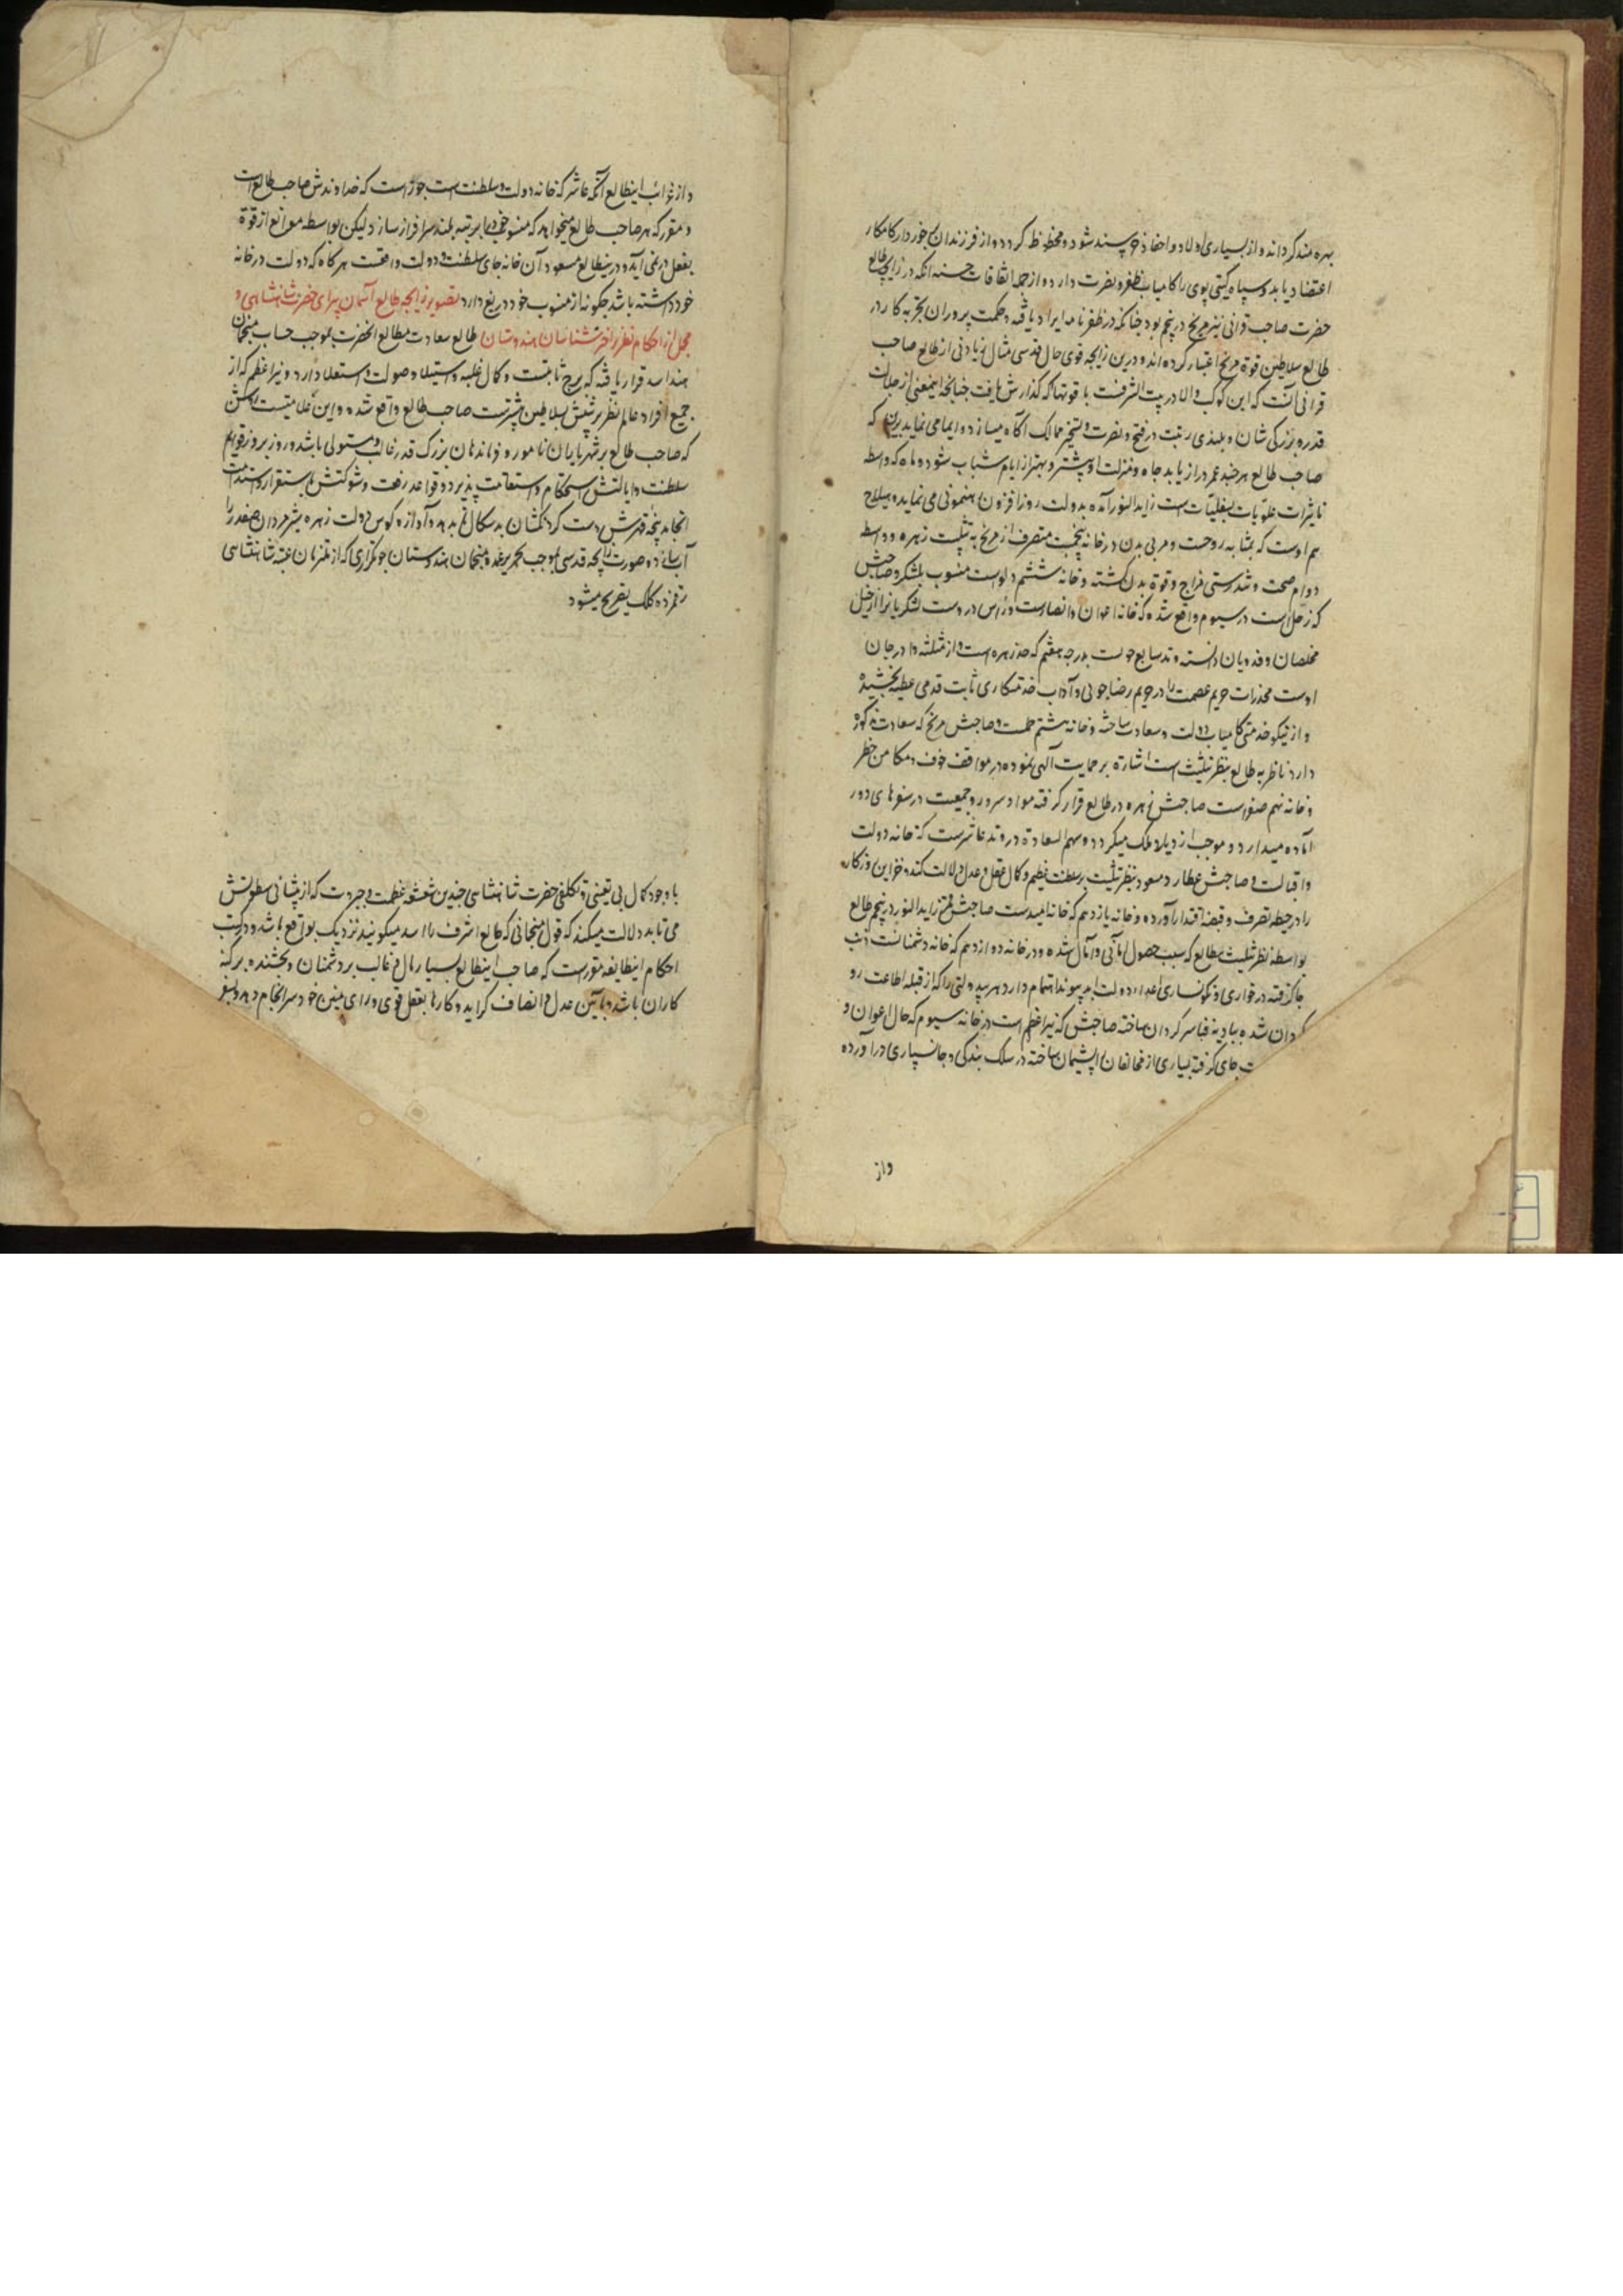 بهره مند گرداند و از بسیاری اولاد و احفاد خورسند شود و محظوظ گردد و از فرزندان برخوردار کامکار
اعتضاد یابد و سپاه گیتی پوی را کامیاب ظفر و نصرت دارد و از جمله اتفاقات حسنه آنکه در زایچه طالع
حضرت صاحب قرانی نیز مریخ در پنجم بود چنانکه در ظفرنامه ایراد یافته و حکمت پروران تجربه کار در
طالع سلاطین قوة مریخ اعتبار کرده اند و درین زایجه قوی حال قدسی مثال زیادتی از طالع صاحب
قرانی آنست که این کوکب والا در بیت الشرفست با قوتها که گذارش یافت چنانچه اینمعنی از جلالت
قدر و بزرگی شان و بلندی رتبت در فتح و نصرت و تسخیر ممالک آگاه میسازد و ایما می نماید برین که
صاحب طالع هر چند عمر دراز یابد جاه و منزلت او بیشتر و بهتر از ایام شباب شود و ماه که واسطه
تاثیرات علویات بسفلیاتست زاید النور آمده بدولت روزافزون رهنمونی می نماید و هیلاج
هم اوست که بمثابه روحست و مربی بدن در خانه پنجمست منصرف از مریخ به تثلیث زهره و واسطه
دوام صحت و تندرستی مزاج و قوة بدن گشته و خانه ششم دلوست منسوب بلشکر و صاحبش
که زحل است در سیوم واقع شده که خانه اعوان و انصارست و راس در وست لشکریانرا از خیل
مخلصان و فدویان دانسته وتد سابع حوت بدرجه هفتم که حد زهره است و از مثلثه در جان
اوست مخدرات حریم عصمت را در حریم رضا جوئی و آداب خدمتکاری ثابت قدمی عطیه بخشیده
و از نیکو خدمتی کامیاب دولت و سعادت ساخته و خانه هشتم حملست و صاحبش مریخ که سعادت مذکوره
دارد ناظر به طالع بنظر تثلیث است اشارة بر حمایت آلهی نموده در مواقف خوف و مکامن خطر
و خانه نهم صورست صاحبش زهره در طالع قرار گرفته مواد سرور و جمعیت در سفرهای دور
آماده میدارد و موجب ازدیاد ملک میگردد و سهم السعادة در وتد عاشرست که خانه دولت
و اقبالست و صاحبش عطارد مسعود بنظر تثلیث بر سلطنت عظیم و کمال عقل و عدل دلالت کند و خزاین روزگار
را در حیطه تصرف و قبضه اقتدار آورده و خانه یازدهم که خانه امیدست صاحبش قمر زاید النور در پنجم طالع
بواسطه نظر تثلیث بطالع که سبب حصول امانی و آمال شده و در خانه دوازدهم که خانه دشمنانست ذنب
جا گرفته در خواری و نگونساری اعداء دولت ابد پیوند اهتمام دارد هر بیدولتی را که از قبله اطاعت رو
گردان شده ببادیه فنا سرگردان ساخته صاحبش که نیر اعظم است در خانه سیوم که حال اعوان و
ت جای گرفته بسیاری از مخالفان را پشیمان ساخته در سلک بندگی و جانسپاری درآورده
واز
و از غرائب اینطالع آنکه عاشر که خانه دولت و سلطنت است جوزاست که خداوندش صاحب طالع است
و مقرر که هر صاحب طالع میخواهد که منسوب خود را بمرتبه بلند سرافراز سازد لیکن بواسطه موانع از قوة
بفعل درنمی آید و درینطالع مسعود آن خانه جای سلطنت و دولت واقعست هرگاه که دولت در خانه
خود داشته باشد چگونه از منسوب خود دریغ دارد تصویر زایجه طالع آسمان پیرای حضرت شاهنشاهی و
مجمل از احکام نظر اخترشناسان هندوستان طالع سعادت مطالع آنحضرت بموجب حساب منجمان
هند اسد قرار یافته که برج ثابتست و کمال غلبه و استیلا و صولت و استعلا دارد و نیر اعظم که از
جمیع افراد عالم نظر تربیتش بسلاطین بیشترست صاحب طالع واقع شده و این علامتیست روشن
که صاحب طالع بر شهریاران نامور و فرماندهان بزرگ قدر غالب و مستولی باشد و روز بروز قوایم
سلطنت و ایالتش استحکام و استقامت پذیرد و قواعد رفعت و شوکتش باستقرار و استدامت
انجامد پنجه قهرش دست گردنکشان بدسگال تابد و آوازه کوس دولت زهره شیرمردان صفدر را
آب سازد و صورت زایجه قدسی بموجب تحریر عمده منجمان هندوستان جوتکرای که از ملازمان عتبه شاهنشاهی
رقمزده کلک تشریح میشود
با وجود کمال بی تعینی و بی تکلفی حضرت شاهنشاهی چندین شعشعه عظمت و جبروت که از پیشانی سطوتش
می تابد دلالت میکند که قول منجمانی که طالع اشرف را اسد میگویند نزدیک بواقع باشد و در کتب
احکام اینطایفه مقررست که صاحب اینطالع بسیار مال و غالب بر دشمنان و بخشنده بر گنه
کاران باشد و بآئین عدل و انصاف گراید و کارها بعقل قوی و رای متین خود سرانجام دهد و سفر